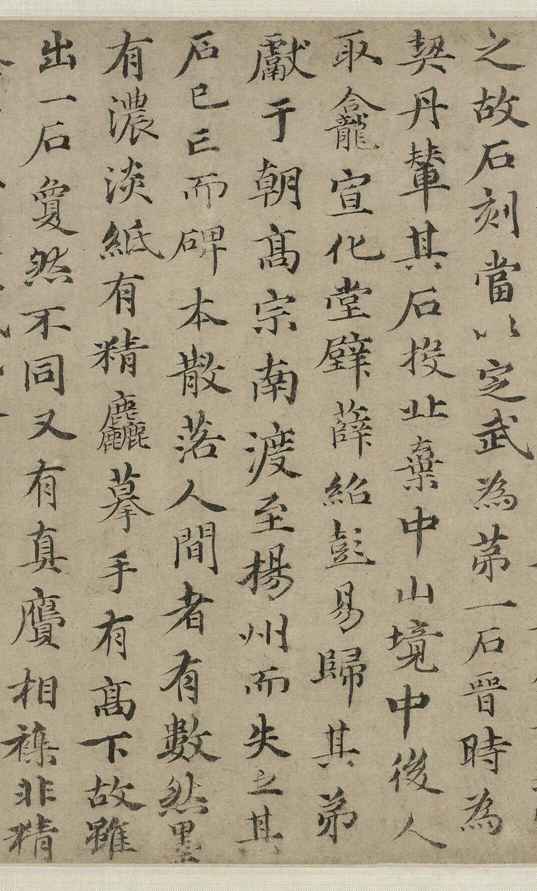 之故石刻當以定武為苐一石晉時為
契丹輦其石投北棄中山境中後人
取龕宣化堂壁薛紹彭易歸其弟
獻于朝髙宗南渡至楊州而失之其
石已亡而碑本散落人間者有數然墨
有濃淡紙有精麤摹手有髙下故雖
出一石敻然不同又有真贗相襍非精